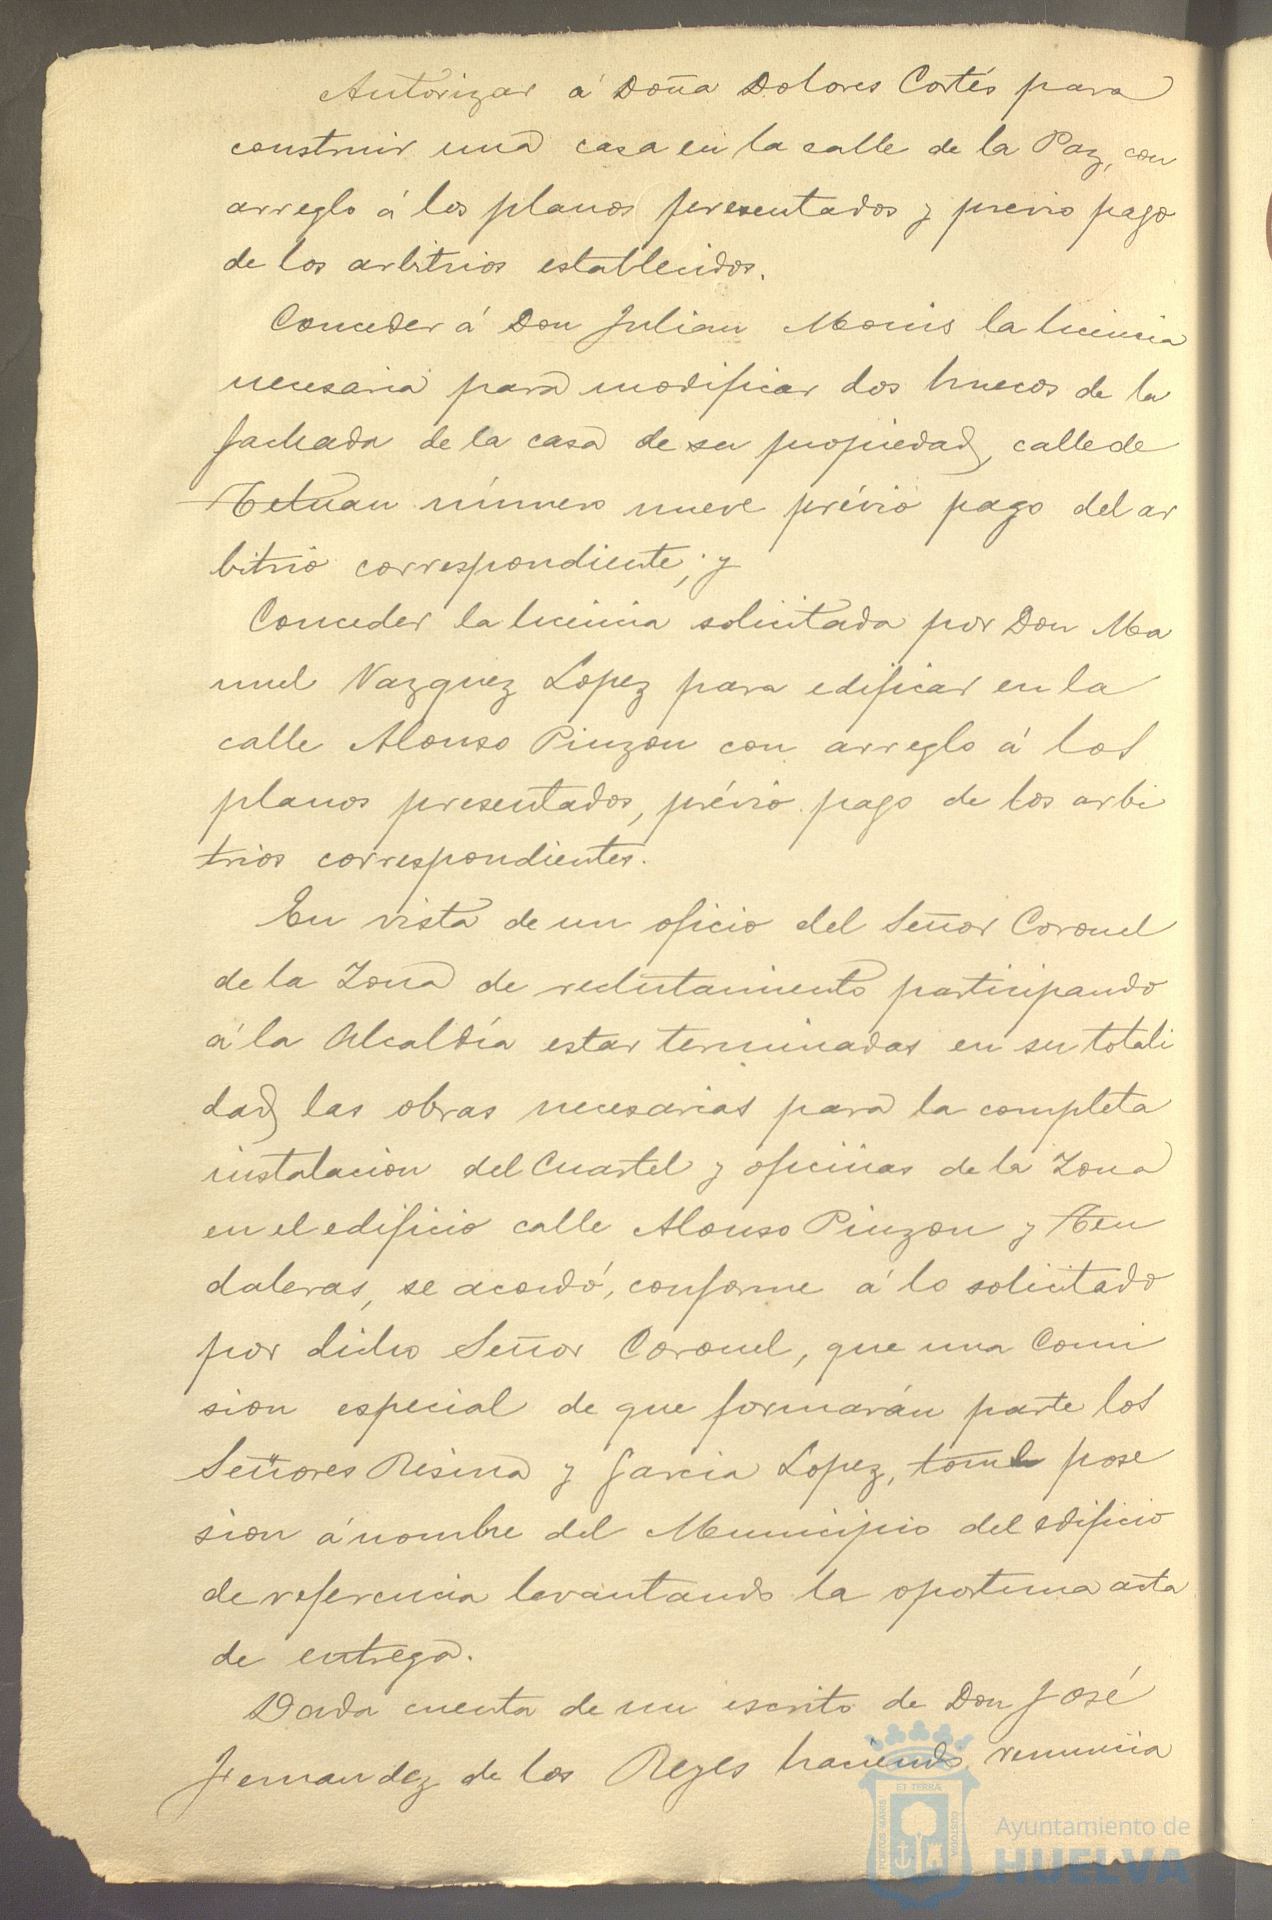 Autorizar á Doña Dolores Cortés para
construir una casa en la calle de la Paz, con
arreglo á los planos presentados y previo pago
de los arbitrios establecidos.
Conceder á Don Julian Monis la licencia
necesaria para modificar dos huecos de la
fachada de la casa de su propiedad, calle de
Tetuan número nueve prévio pago del ar
bitrio correspondiente; y
Conceder la licencia solicitada por Don Ma
nuel Vazquez Lopez para edificar en la
calle Alonso Pinzon con arreglo á los
planos presentados, prévio pago de los arbi
trios correspondientes.
En vista de un oficio del Señor Coronel
de la Zona de reclutamiento participando
á la Alcaldía estar terminadas en su totali
dad las obras necesarias para la completa
instalacion del Cuartel y oficinas de la Zona
en el edificio calle Alonso Pinzon y Ten
daleras, se acordó, conforme á lo solicitado
por dicho Señor Coronel, que una Comi
sion especial de que formarán parte los
Señores Resina y Garcia Lopez, tome pose
sion á nombre del Municipio del edificio
de referencia levantando la oportuna acta
de entrega.
Dada cuenta de un escrito de Don José
Fernandez de los Reyes haciendo renuncia
Ayuntamiento de
HUELVA